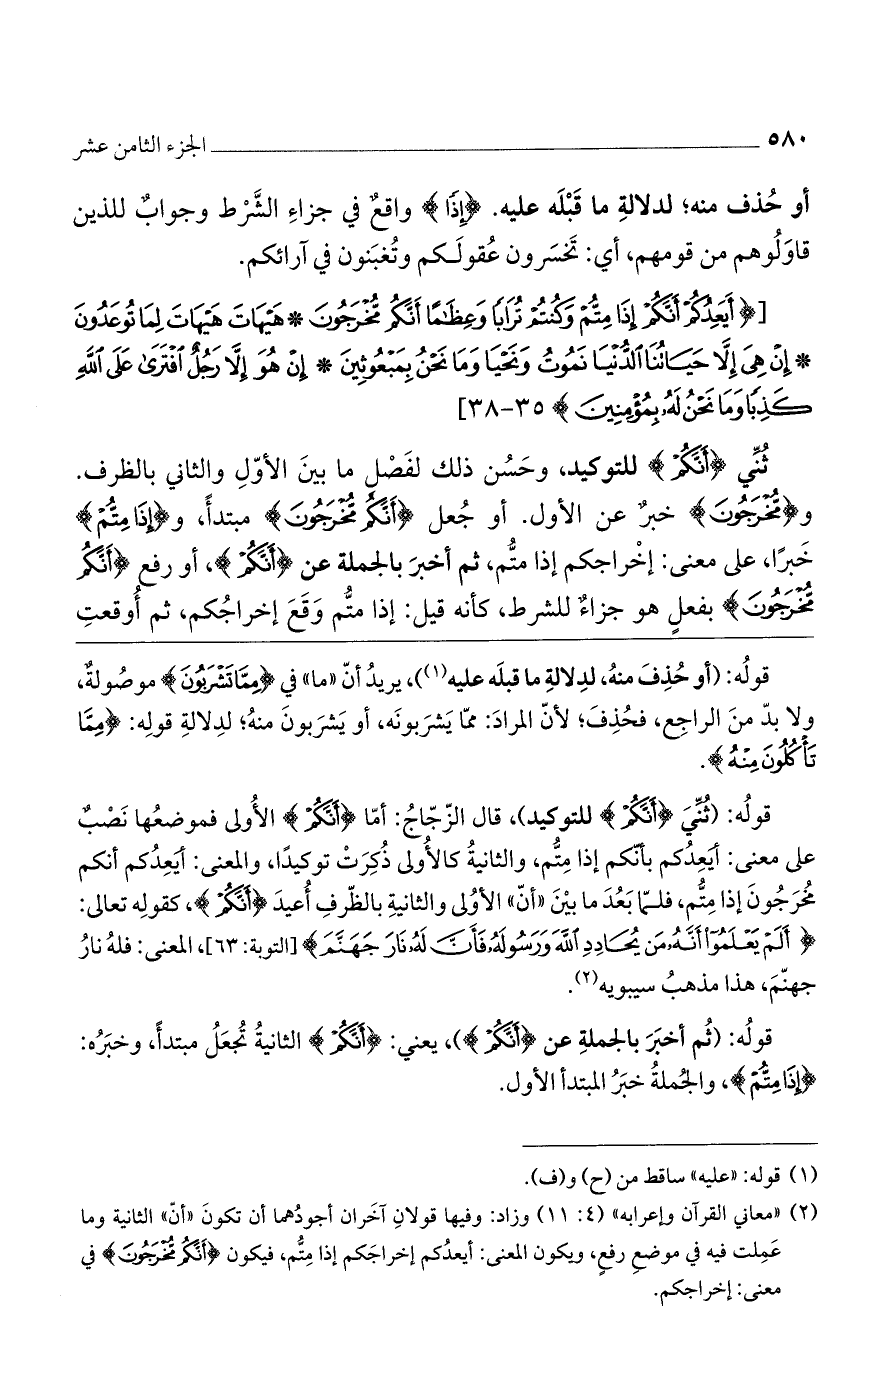 ٥٨٠ الجزء الثامن عشر
أو حُذف منه؛ لدلالةِ ما قَبْلَه عليه. ﴿إِذًا﴾ واقعٌ في جزاءِ الشَّرْط وجوابٌ للذين
قاوَلُوهم من قومهم، أي: تَخْسَرون عُقولَـكم وتُغبَنون في آرائكم.
[﴿أَيَعِدُكُمْ أَنَّكُمْ إِذَا مِتُّمْ وَكُنتُمْ تُرَابًا وَعِظَامًا أَنَّكُم مُّخْرَجُونَ * هَيْهَاتَ هَيْهَاتَ لِمَا تُوعَدُونَ
* إِنْ هِيَ إِلَّا حَيَاتُنَا ٱلدُّنْيَا نَمُوتُ وَنَحْيَا وَمَا نَحْنُ بِمَبْعُوثِينَ * إِنْ هُوَ إِلَّا رَجُلٌ ٱفْتَرَىٰ عَلَى ٱللَّهِ
كَذِبًا وَمَا نَحْنُ لَهُۥ بِمُؤْمِنِينَ﴾ ٣٥-٣٨]
ثُنِّي ﴿أَنَّكُمْ﴾ للتوكيد، وحَسُن ذلك لفَصْلِ ما بينَ الأوّلِ والثاني بالظرف.
و﴿مُّخْرَجُونَ﴾ خبرٌ عن الأول. أو جُعل ﴿أَنَّكُم مُّخْرَجُونَ﴾ مبتدأً، و﴿إِذَا مِتُّمْ﴾
خَبرًا، على معنى: إخْراجكم إذا متُّم، ثم أخبرَ بالجملة عن ﴿أَنَّكُمْ﴾، أو رفع ﴿أَنَّكُم
مُّخْرَجُونَ﴾ بفعلٍ هو جزاءٌ للشرط، كأنه قيل: إذا متُّم وَقَعَ إخراجُكم، ثم أُوقعتِ
قولُه: (أو حُذِفَ منهُ، لدِلالةِ ما قبلَه عليه(١))، يريدُ أنّ «ما» في ﴿مِمَّا تَشْرَبُونَ﴾ موصُولةٌ،
ولا بدّ منَ الراجع، فحُذِفَ؛ لأنّ المرادَ: ممّا يَشرَبونَه، أو يَشرَبونَ منهُ؛ لدِلالةِ قولِه: ﴿مِمَّا
تَأْكُلُونَ مِنْهُ﴾.
قولُه: (ثُنِّيَ ﴿أَنَّكُمْ﴾ للتوكيد)، قال الزّجّاجُ: أمّا ﴿أَنَّكُمْ﴾ الأُولى فموضعُها نَصْبٌ
على معنى: أيَعِدُكم بأنّكم إذا مِتُّم، والثانيةُ كالأُولى ذُكِرَتْ توكيدًا، والمعنى: أيَعِدُكم أنكم
مُخرَجُونَ إذا مِتُّم، فلـمّا بَعُدَ ما بيْنَ «أنّ» الأوُلى والثانيةِ بالظّرفِ أُعيدَ ﴿أَنَّكُمْ﴾، كقولِه تعالى:
﴿أَلَمْ يَعْلَمُوٓاْ أَنَّهُۥ مَن يُحَادِدِ ٱللَّهَ وَرَسُولَهُۥ فَأَنَّ لَهُۥ نَارَ جَهَنَّمَ﴾ [التوبة: ٦٣]، المعنى: فلهُ نارُ
جهنّمَ، هذا مذهبُ سيبويه(٢).
قولُه: (ثُم أخبَرَ بالجملةِ عن ﴿أَنَّكُمْ﴾)، يعني: ﴿أَنَّكُمْ﴾ الثانيةُ تُجعَلُ مبتدأً، وخبَرُه:
﴿إِذَا مِتُّمْ﴾، والجُملةُ خبَرُ المبتدأ الأول.
(١) قوله: «عليه» ساقط من (ح) و(ف).
(٢) «معاني القرآن وإعرابه» (٤: ١١) وزاد: وفيها قولانِ آخَران أجودُهما أن تكونَ «أنّ» الثانية وما
عَمِلت فيه في موضعِ رفعٍ، ويكون المعنى: أيعدُكم إخراجَكم إذا مِتُّم، فيكون ﴿أَنَّكُم مُّخْرَجُونَ﴾ في
معنى: إخراجكم.